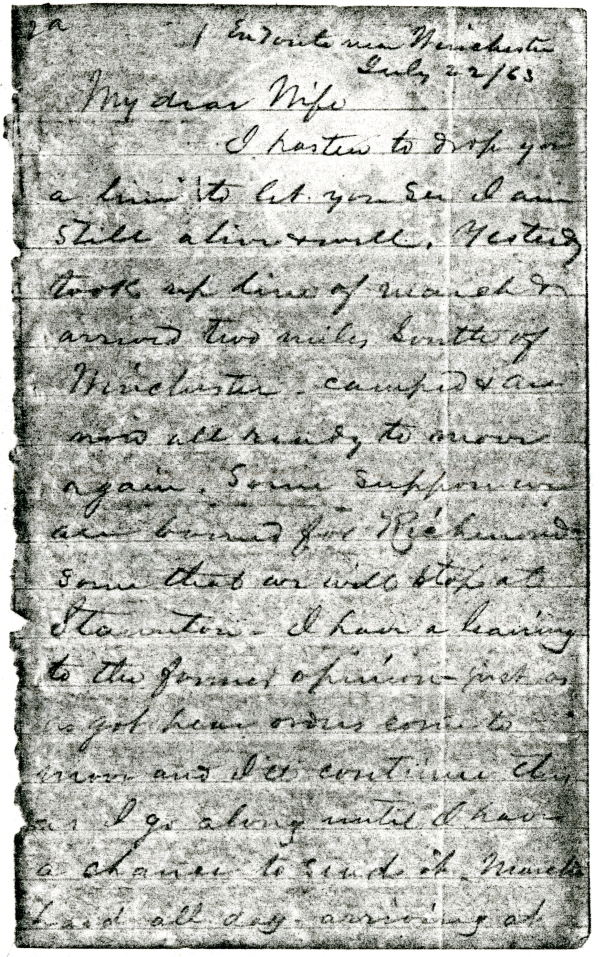 Enroute near Winchester
July 22/63
My dear Wife
I hasten to drop you
a line to let you see I am
still alive & well. Yesterdy
took up line of march &
arrived two miles South of
Winchester - camped & are
now all ready to move
again. Some suppose we
are bound for Richmond
some that we will stop at
Staunton - I have a leaning
to the former opinion - just as
as got here orders come to
move and I'll continue
as I go along until I have
a chance to send it. Marched
hard all day - arriving at